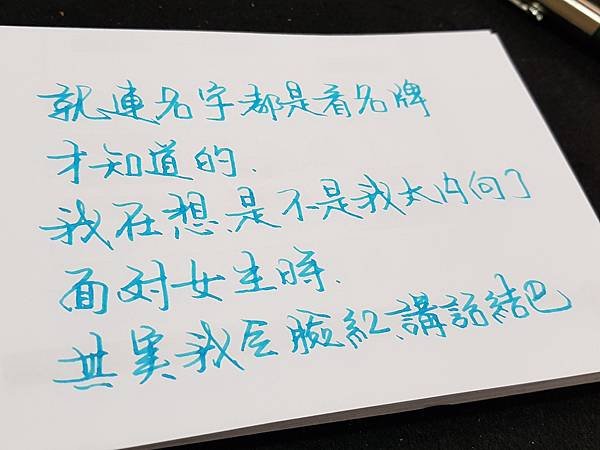 就連名字都是看名牌
才知道的.
我在想是不是我太內向了
面對女生時.
其實我会臉紅、講話結巴